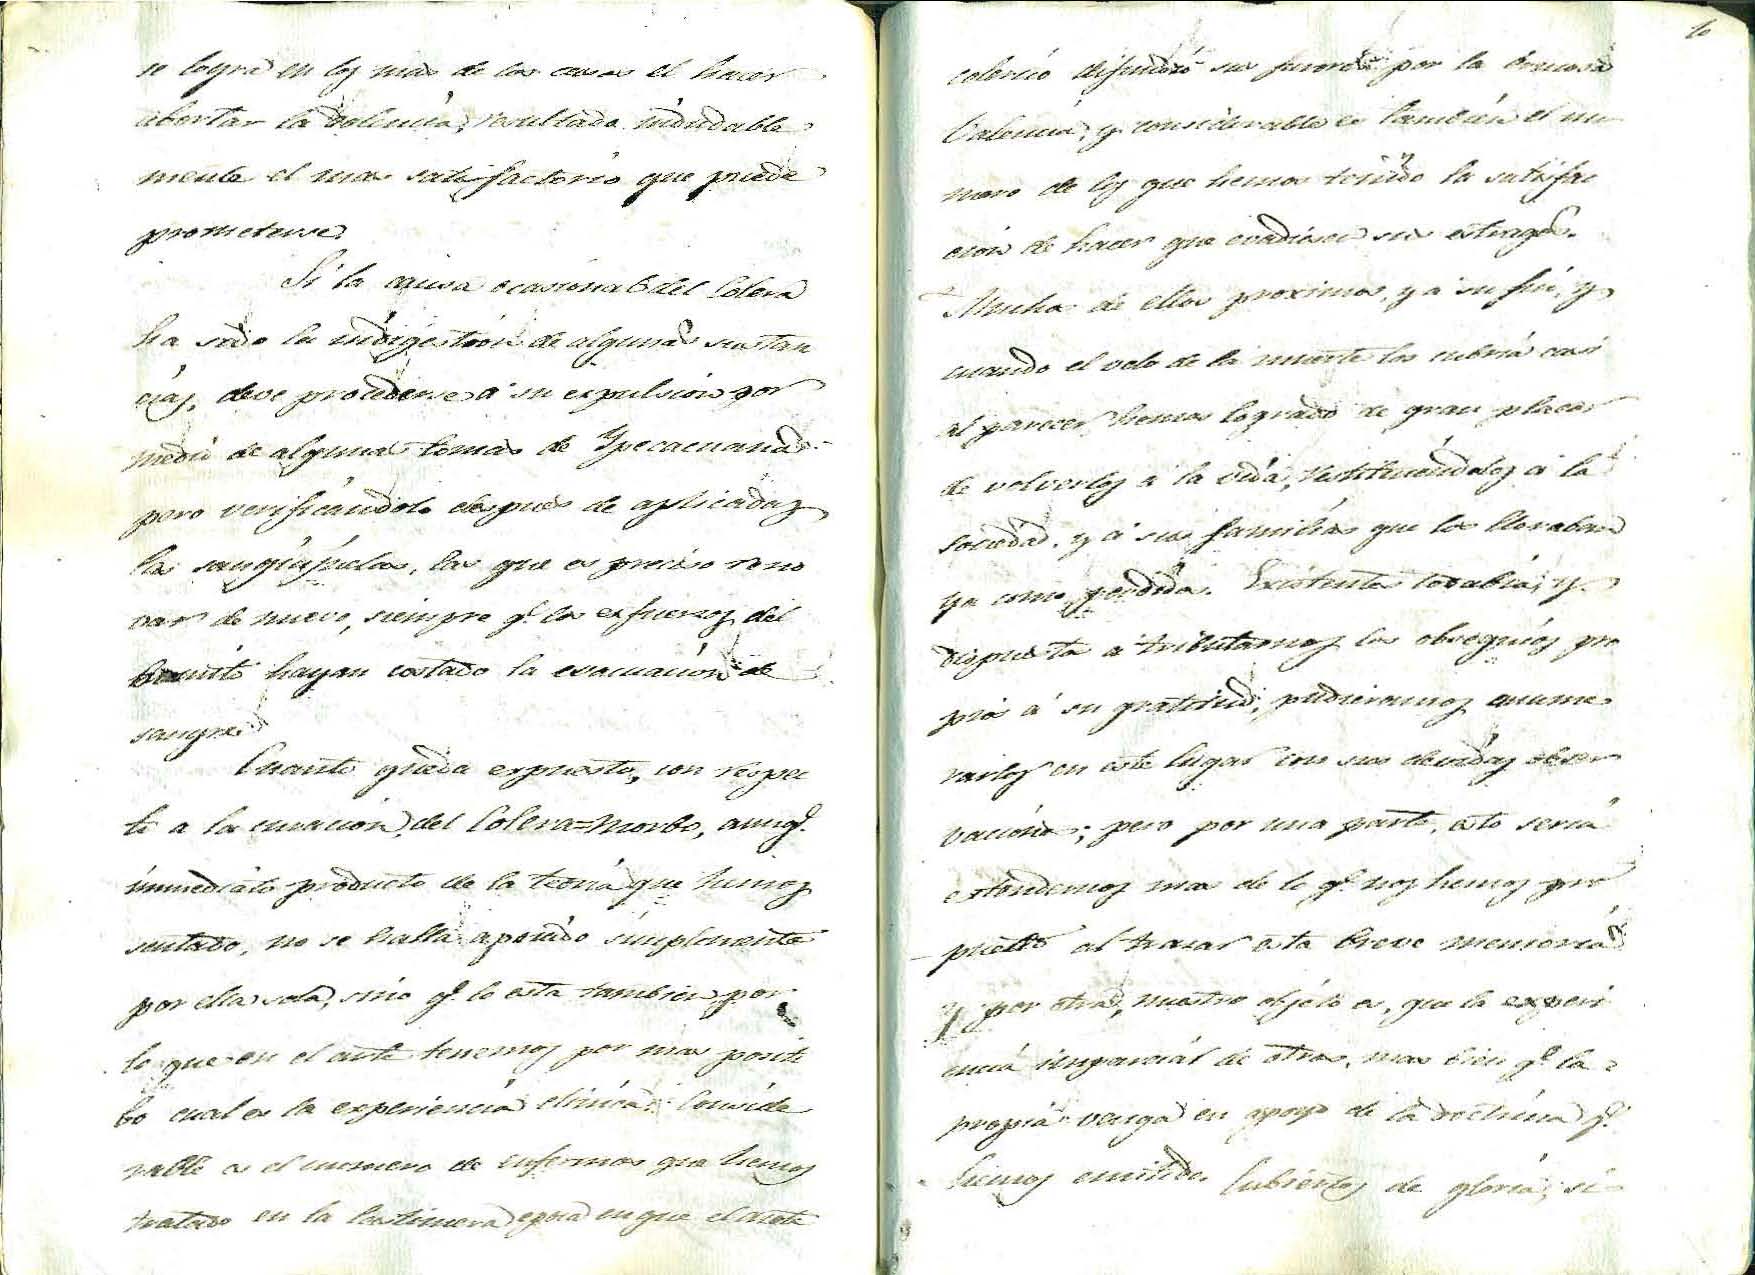 se logra en los mas de los casos el hacer
abortar la dolencia, resultado indudable
mente el mas satisfactorio que puede
prometerse.
Si la causa ocasional del Colera
ha sido la indigestion de algunas sustan
cias, deve procederse á su expulsion por
medio de alguna toma de Ypecacuana
pero verificandolo despues de aplicadas
las sanguijuelas, las que es preciso reno
var de nuevo, siempre q.e los esfuerzos del
bomito hayan cortado la evacuacion de
sangre.
Cuanto queda expuesto, con respec
to a la curacion del Colera=Morbo, aunq.e
inmediato producto de la teoria que hemos
sentado, no se halla apoiado simplemente
por ella sola, sino q.e lo esta tambien por
lo que en el arte tenemos por mas positi
bo cual es la experiencia clinica. Conside
rable es el numero de enfermos que hemos
tratado en la lastimera epoca en que el azote
10
colerico difundió sus furores por la hermosa
Valencia, y considerable es tambien el nu
mero de los que hemos tenido la satisfac
cion de hacer que evadiesen sus estragos.
Muchos de ellos proximos ya á su fin, y
cuando el velo de la muerte los cubria casi
al parecer, hemos logrado el gran placer
de volverlos á la vida, restituiendolos á la
sociedad, y á sus familias que los lloraban
ya como perdidos. Existentes todabia, y
dispuestos á tributarnos los obsequios pro
pios á su gratitud, pudieramos enume
rarlos en este lugar con sus devidas obser
vaciones; pero por una parte, esto seria
extendernos mas de lo q.e nos hemos pro
puesto al trazar esta breve memoria
y por otra, nuestro objeto es, que la experi
encia imparcial de otros, mas bien q.e la
propia venga en apoyo de la doctrina q.e
hemos emitido. Cubiertos de gloria, si